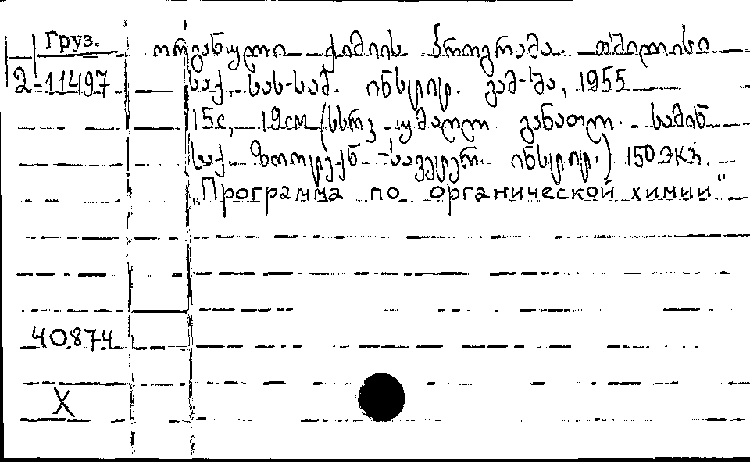 Груз.
2-11497
ორგანული ქიმიის პროგრამა. თბილისი
საქ. სას-სამ. ინსტიტ. გამ-მა, 1955
15с, 19см (სსრკ უმაღლ. განათლ. სამინ.
საქ. ზოოტექნ.-სავეტერ. ინსტიტ.) 150 экз.
„Программа по органической химии"
40874
X